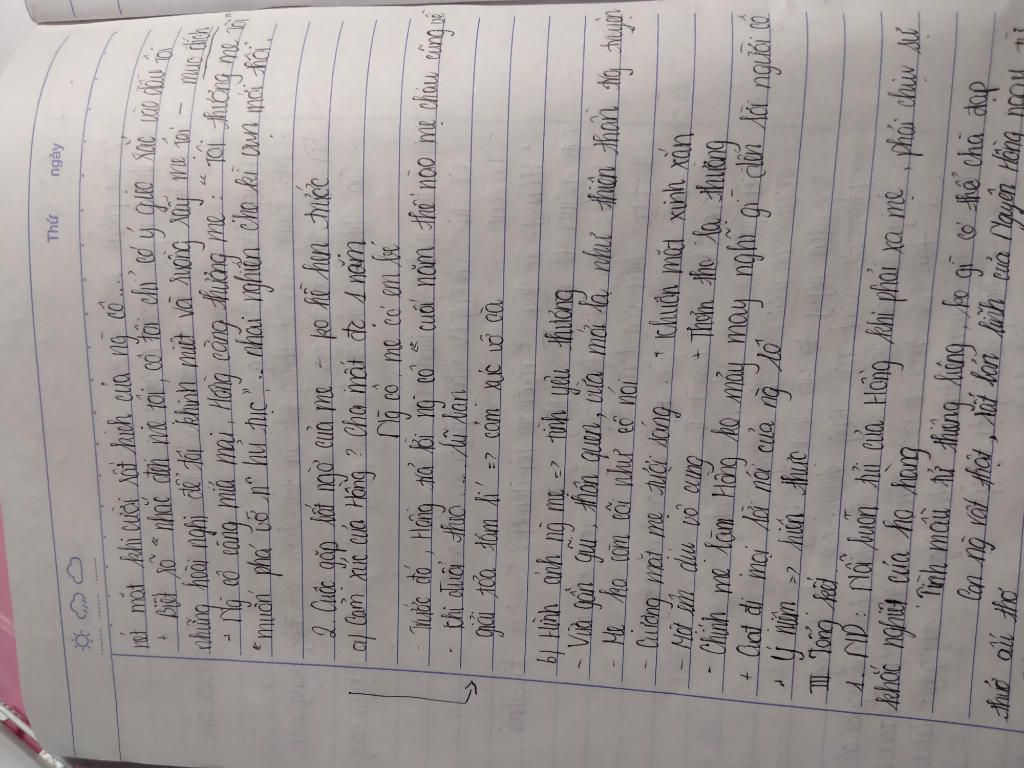 Thứ ngày
nét mặt khi cười rất kịch của ng cô...
+ biết rõ "nhắc đến mẹ tôi, cô tôi chỉ có ý gieo rắc vào đầu tôi
những hoài nghi để tôi khinh miệt và ruồng rẫy mẹ tôi - mục đích
- Ng cô càng mỉa mai, Hồng càng thương mẹ: "tôi thương mẹ tôi"
"muốn phá cỡ n hủ tục"... nhai nghiến cho kì vụn mới thôi.
2. Cuộc gặp bất ngờ của mẹ - ko hề hẹn trước
a) Cảm xúc của Hồng? cha mất đc 1 năm
Ng cô, mẹ có em bé
- Trước đó, Hồng trả lời ng cô "cuối năm thế nào mẹ cháu cũng về
- chi đuổi theo... ríu chân
giải tỏa tâm lí => cảm xúc vỡ oà
b) Hình ảnh ng mẹ => tình yêu thương
- Vừa gần gũi, thân quen, vừa mới lạ như thiên thần trg truyện
- Mẹ ko còm cõi như cô nói
- Gương mặt mẹ tươi sáng + khuôn mặt xinh xắn
- Mơ êm dịu vô cùng + Thơm tho lạ thường
- Chính mẹ làm Hồng ko mảy may nghĩ gì đến lời người cô
+ Gạt đi mọi lời nói của ng cô
+ Ý niệm => hiến thực
III Tổng kết
1. ND: Nỗi buồn tủi của Hồng khi phải xa mẹ, phải chịu sự
khắc nghiệt của họ hàng
Tình mẫu tử thiêng liêng, ko gì có thể chà đạp
thuở ấu thơ